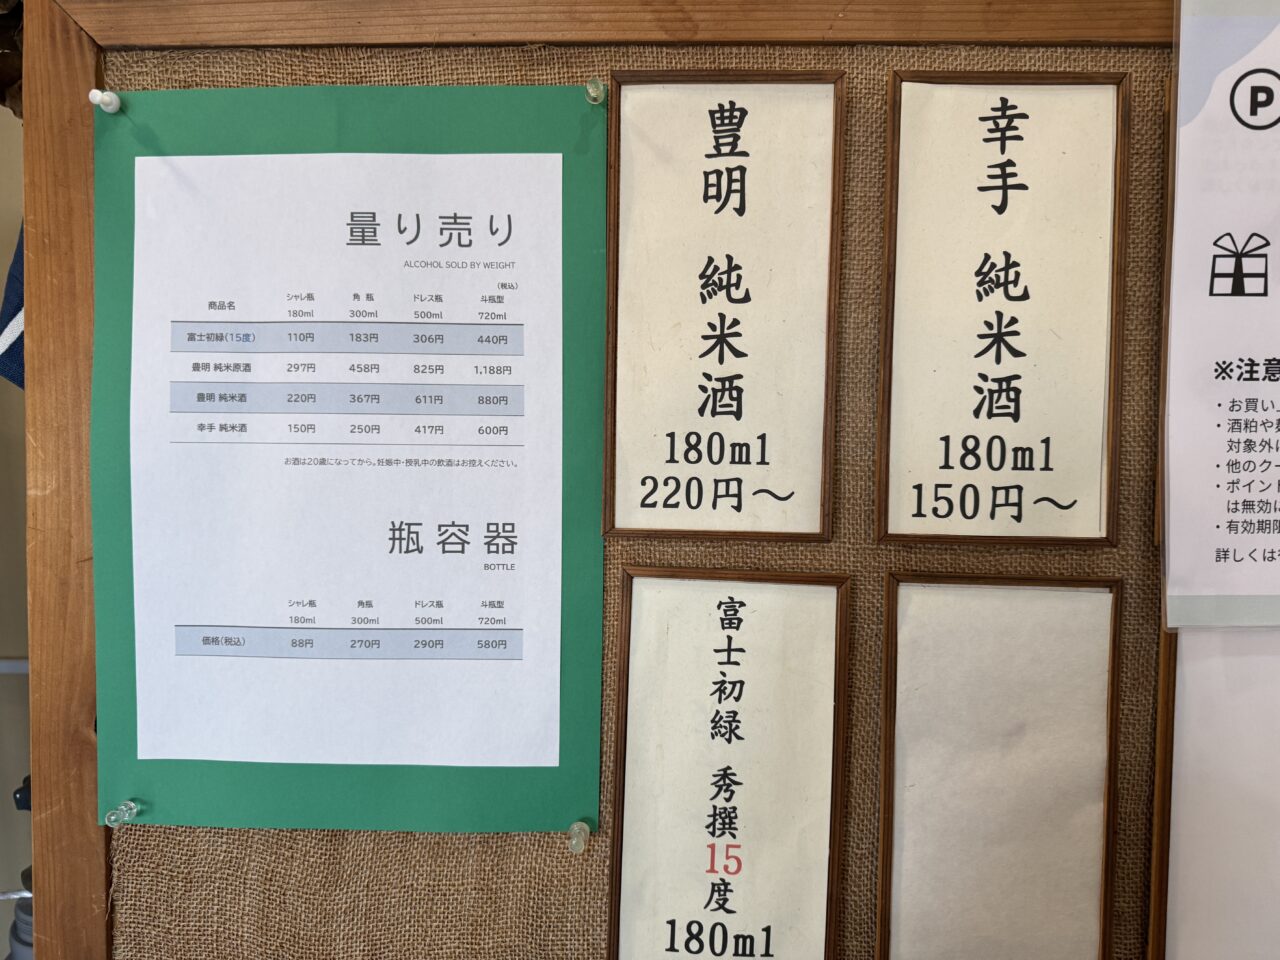 量り売り
ALCOHOL SOLD BY WEIGHT
(税込)
商品名 シャレ瓶 180ml 角 瓶 300ml ドレス瓶 500ml 斗瓶型 720ml
富士初緑(15度) 110円 183円 306円 440円
豊明 純米原酒 297円 458円 825円 1,188円
豊明 純米酒 220円 367円 611円 880円
幸手 純米酒 150円 250円 417円 600円
お酒は20歳になってから。妊娠中・授乳中の飲酒はお控えください。
瓶容器
BOTTLE
シャレ瓶 180ml 角瓶 300ml ドレス瓶 500ml 斗瓶型 720ml
価格(税込) 88円 270円 290円 580円
豊明 純米酒
180ml
220円～
幸手 純米酒
180ml
150円～
富士初緑 秀撰15度
180ml
P
※注意
・お買い
・酒粕や
対象外
・他のク
・ポイン
は無効
・有効期限
詳しくは